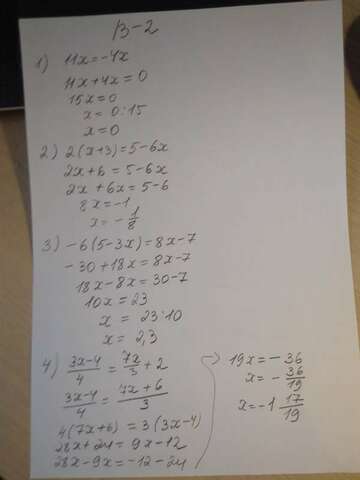 В-2
1) 11x=-4x
11x+4x=0
15x=0
x=0:15
x=0
2) 2(x+3)=5-6x
2x+6=5-6x
2x+6x=5-6
8x=-1
x=-1/8
3) -6(5-3x)=8x-7
-30+18x=8x-7
18x-8x=30-7
10x=23
x=23:10
x=2,3
4) (3x-4)/4=7x/3+2
(3x-4)/4=(7x+6)/3
4(7x+6)=3(3x-4)
28x+24=9x-12
28x-9x=-12-24
→ 19x=-36
x=-36/19
x=-1 17/19